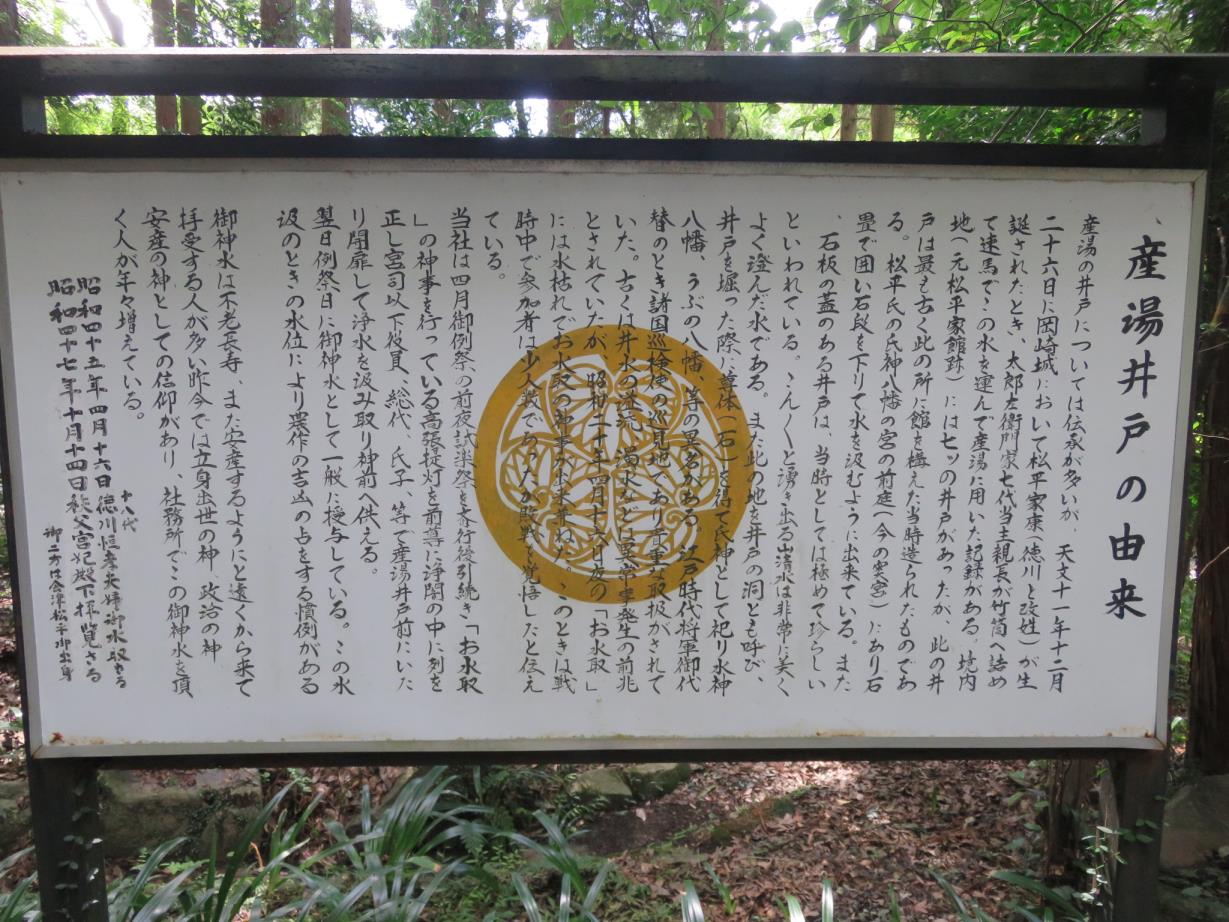 産湯井戸の由来
産湯の井戸については伝承が多いが、天文十一年十二月
二十六日に岡崎城において松平家康(徳川と改姓)が生
誕されたとき、太郎左衛門家七代当主親長が竹筒へ詰め
て速馬でこの水を運んで産湯に用いた記録がある。境内
地(元松平家館跡)には七ッの井戸があったが、此の井
戸は最も古く此の所に館を構えた当時造られたものであ
る。松平氏の氏神八幡の宮の前庭(今の奥宮)にあり石
畳で囲い石段を下りて水を汲むように出来ている。また
、石板の蓋のある井戸は、当時としては極めて珍らしい
といわれている。こんこんと湧き出る山清水は非常に美く
よく澄んだ水である。また此の地を井戸の洞とも呼び、
井戸を堀った際に尊体(石)を得て氏神として祀り水神
八幡、うぶの八幡、等の異名がある。江戸時代将軍御代
替のとき諸国巡検使の巡見地であり貴重な取扱がされて
いた。古くは井水の逆流、濁水などは異常事発生の前兆
とされていたが、昭和二十年四月十六日夜の「お水取」
には水枯れでお水取の神事が出来兼ねた。このときは戦
時中で参加者は少人数であり人が敗戦を覚悟したと伝え
ている。
当社は四月御例祭の前夜試楽祭を斎行後引続き「お水取
」の神事を行っている高張提灯を前導に浄闇の中に列を
正し宮司以下役員、総代、氏子、等で産湯井戸前にいた
り開扉して浄水を汲み取り神前へ供える。
翌日例祭日に御神水として一般に授与している。この水
汲のときの水位により農作の吉凶の占をする慣例がある
御神水は不老長寿、また安産するようにと遠くから来て
拝受する人が多い昨今では立身出世の神、政治の神
安産の神としての信仰があり、社務所でこの御神水を頂
く人が年々増えている。
十八代
昭和四十五年四月十六日徳川恒孝夫婦御水取さる
昭和四十七年十月十四日秩父宮妃殿下拝覧さる
御二方は会津松平御出身